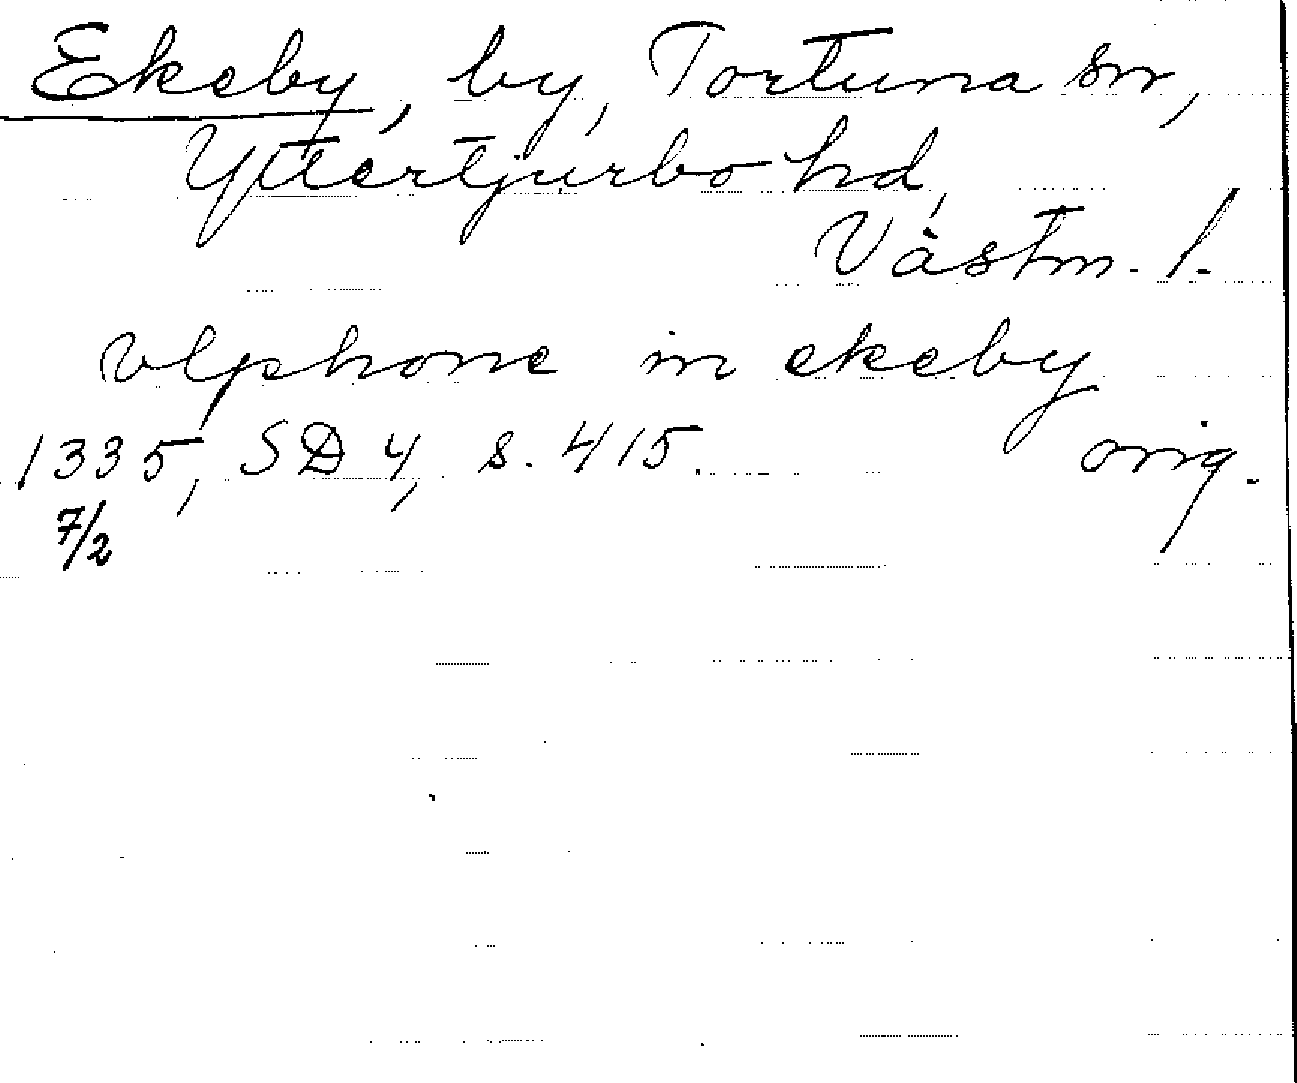 Ekeby, by, Tortuna sn,
Yttertjurbo hd,
Västm. l.
vlphone in ekeby
1335, SD 4, s. 415. orig.
7/2